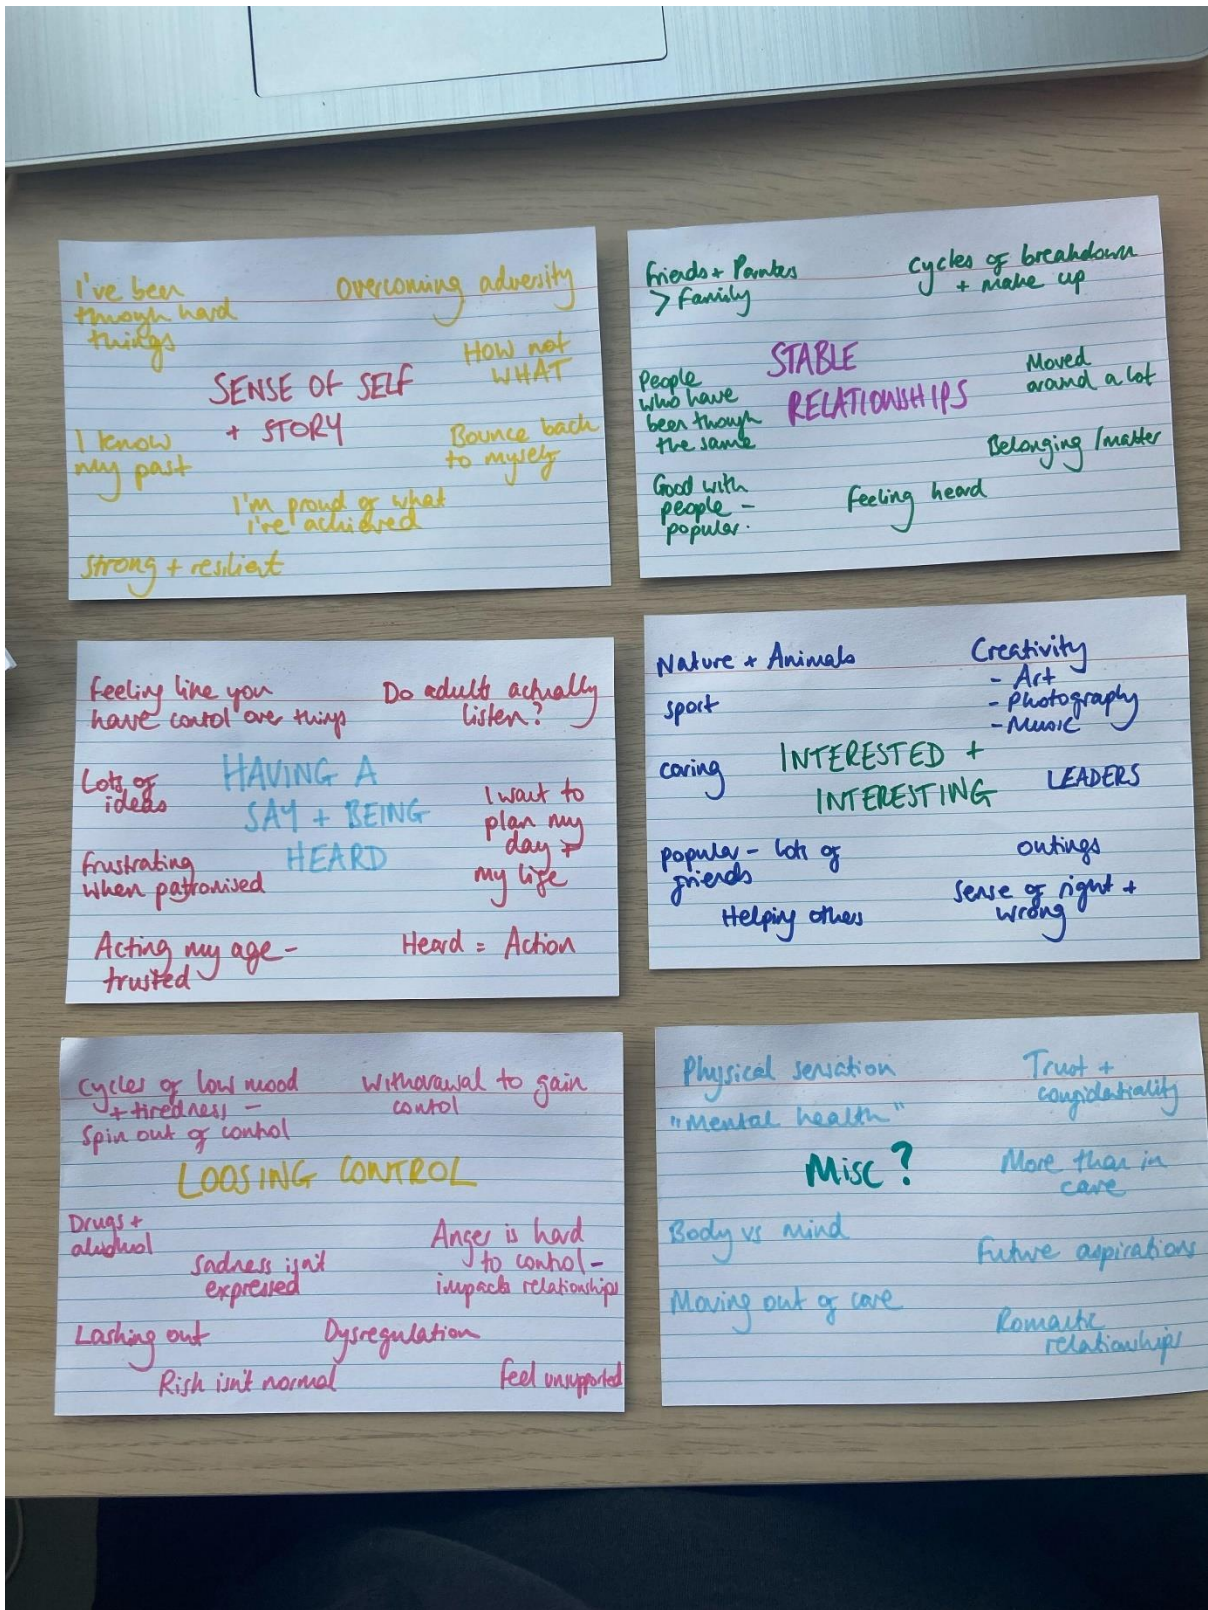 I've been
through hard
things
Overcoming adversity
HOW not
WHAT
SENSE OF SELF
+ STORY
I know
my past
Bounce back
to myself
I'm proud of what
i've achieved
Strong + resilient
friends + Partners
> Family
Cycles of breakdown
+ make up
STABLE
RELATIONSHIPS
People
who have
been though
the same
Moved
around a lot
Belonging / matter
Good with
people –
popular.
feeling heard
Feeling like you
have control over things
Do adults actually
listen?
Lots of
ideas
HAVING A
SAY + BEING
HEARD
I want to
plan my
day +
my life
frustrating
when patronised
Acting my age –
trusted
Heard = Action
Nature + Animals
Creativity
- Art
- Photography
- Music
sport
caring
INTERESTED +
INTERESTING
LEADERS
popular – lots of
friends
outings
Helping others
sense of right +
wrong
Cycles of low mood
+ tiredness –
Spin out of control
Withdrawal to gain
contol
LOOSING CONTROL
Drugs +
alcohol
Sadness isn't
expressed
Anger is hard
to control –
impacts relationships
Lashing out
Dysregulation
Risk isn't normal
Feel unsupported
Physical sensation
Trust +
confidentiality
"Mental health"
Misc?
More than in
care
Body vs mind
Future aspirations
Moving out of care
Romantic
relationships